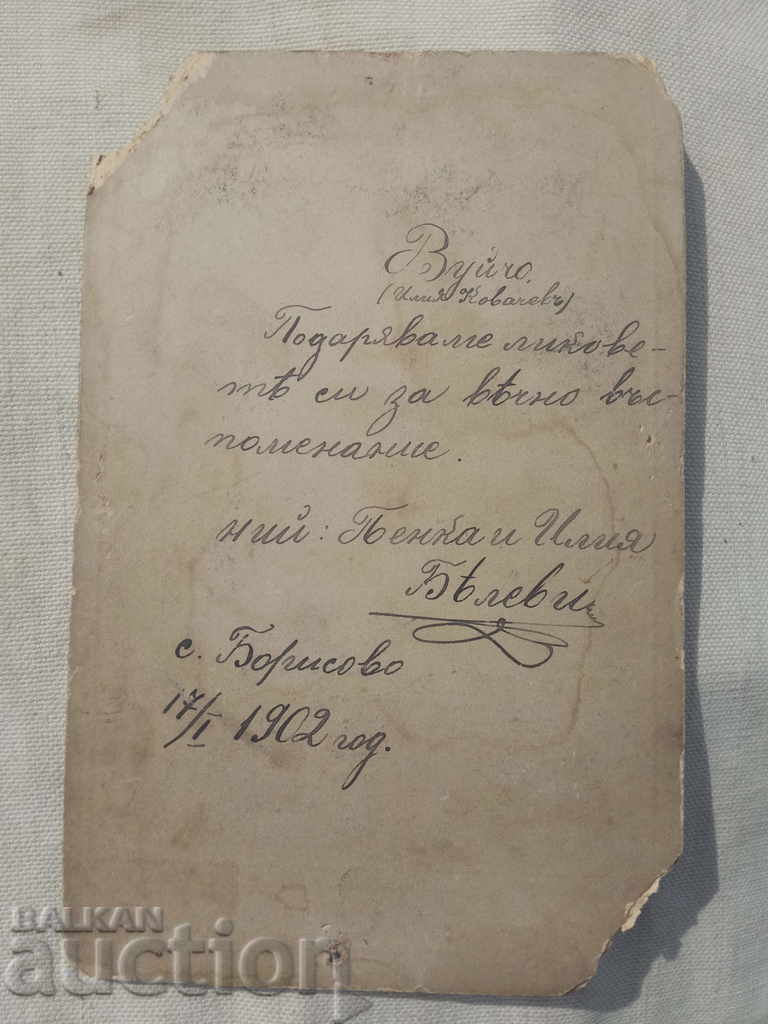 Вуйчо.
(Илия Ковачевъ)
Подаряваме ликове-
тѣ си за вѣчно въс-
поменание.
ний: Пенка и Илия
Бѣлеви
с. Борисово
17/I 1902 год.
BALKAN
auction